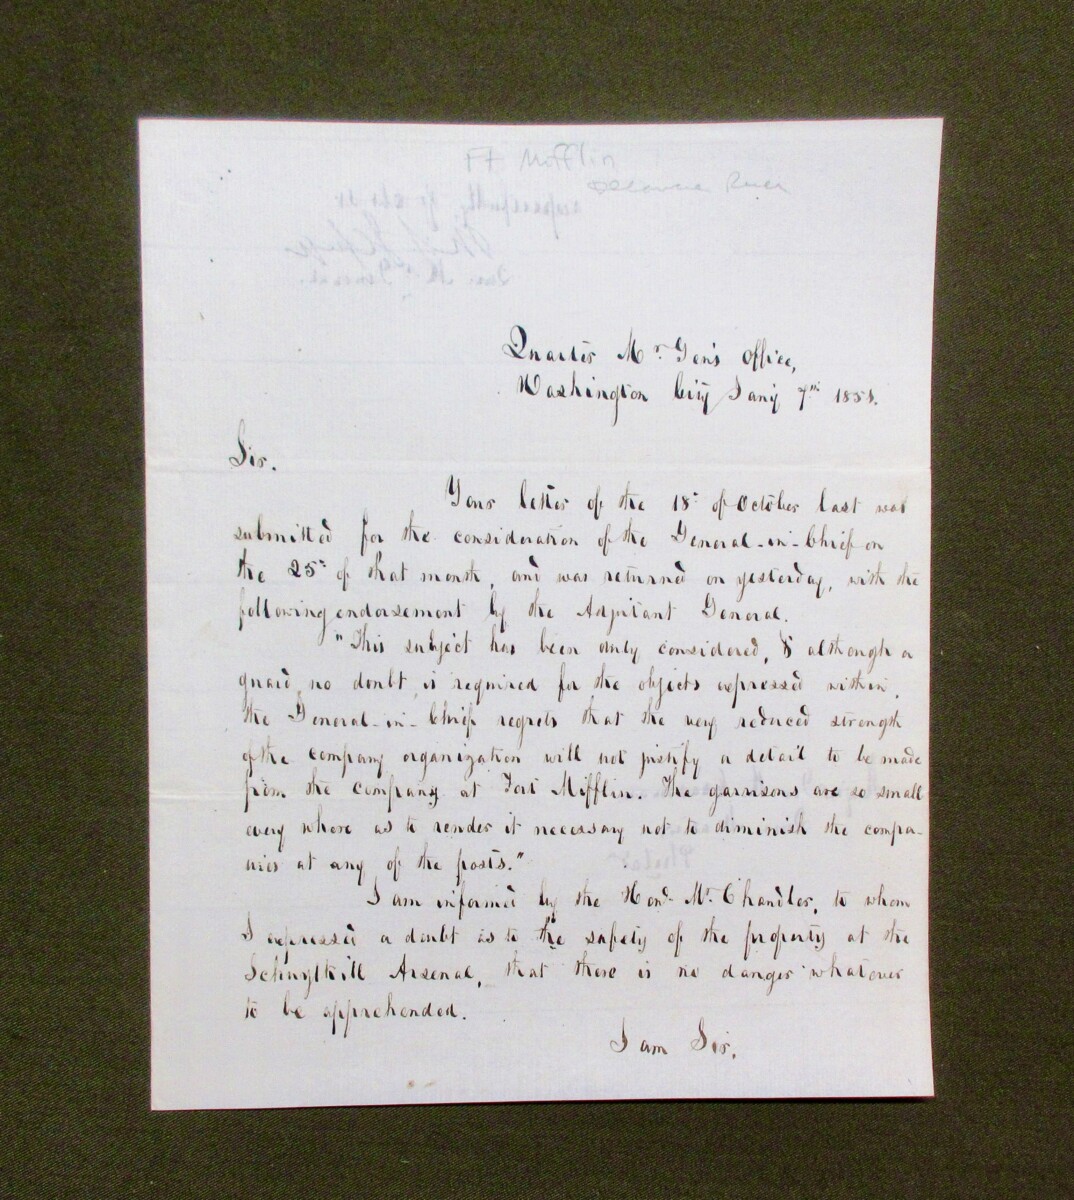 Ft Mifflin
Delaware River
Quarter Mr. Gen's Office,
Washington City Jany 7th 185
Sir.
Your letter of the 18th of October last was
submitted for the consideration of the General-in-Chief on
the 25th of that month, and was returned on yesterday, with the
following endorsement by the Adjutant General.
"This subject has been duly considered, & although a
guard, no doubt, is required for the objects expressed within,
the General-in-Chief regrets that the very reduced strength
of the company organization will not justify a detail to be made
from the company at Fort Mifflin. The garrisons are so small
every where as to render it necessary not to diminish the compa-
nies at any of the posts."
I am informed by the Hond. Mr. Chandler, to whom
I expressed a doubt as to the safety of the property at the
Schuylkill Arsenal, that there is no danger whatever
to be apprehended.
I am Sir,